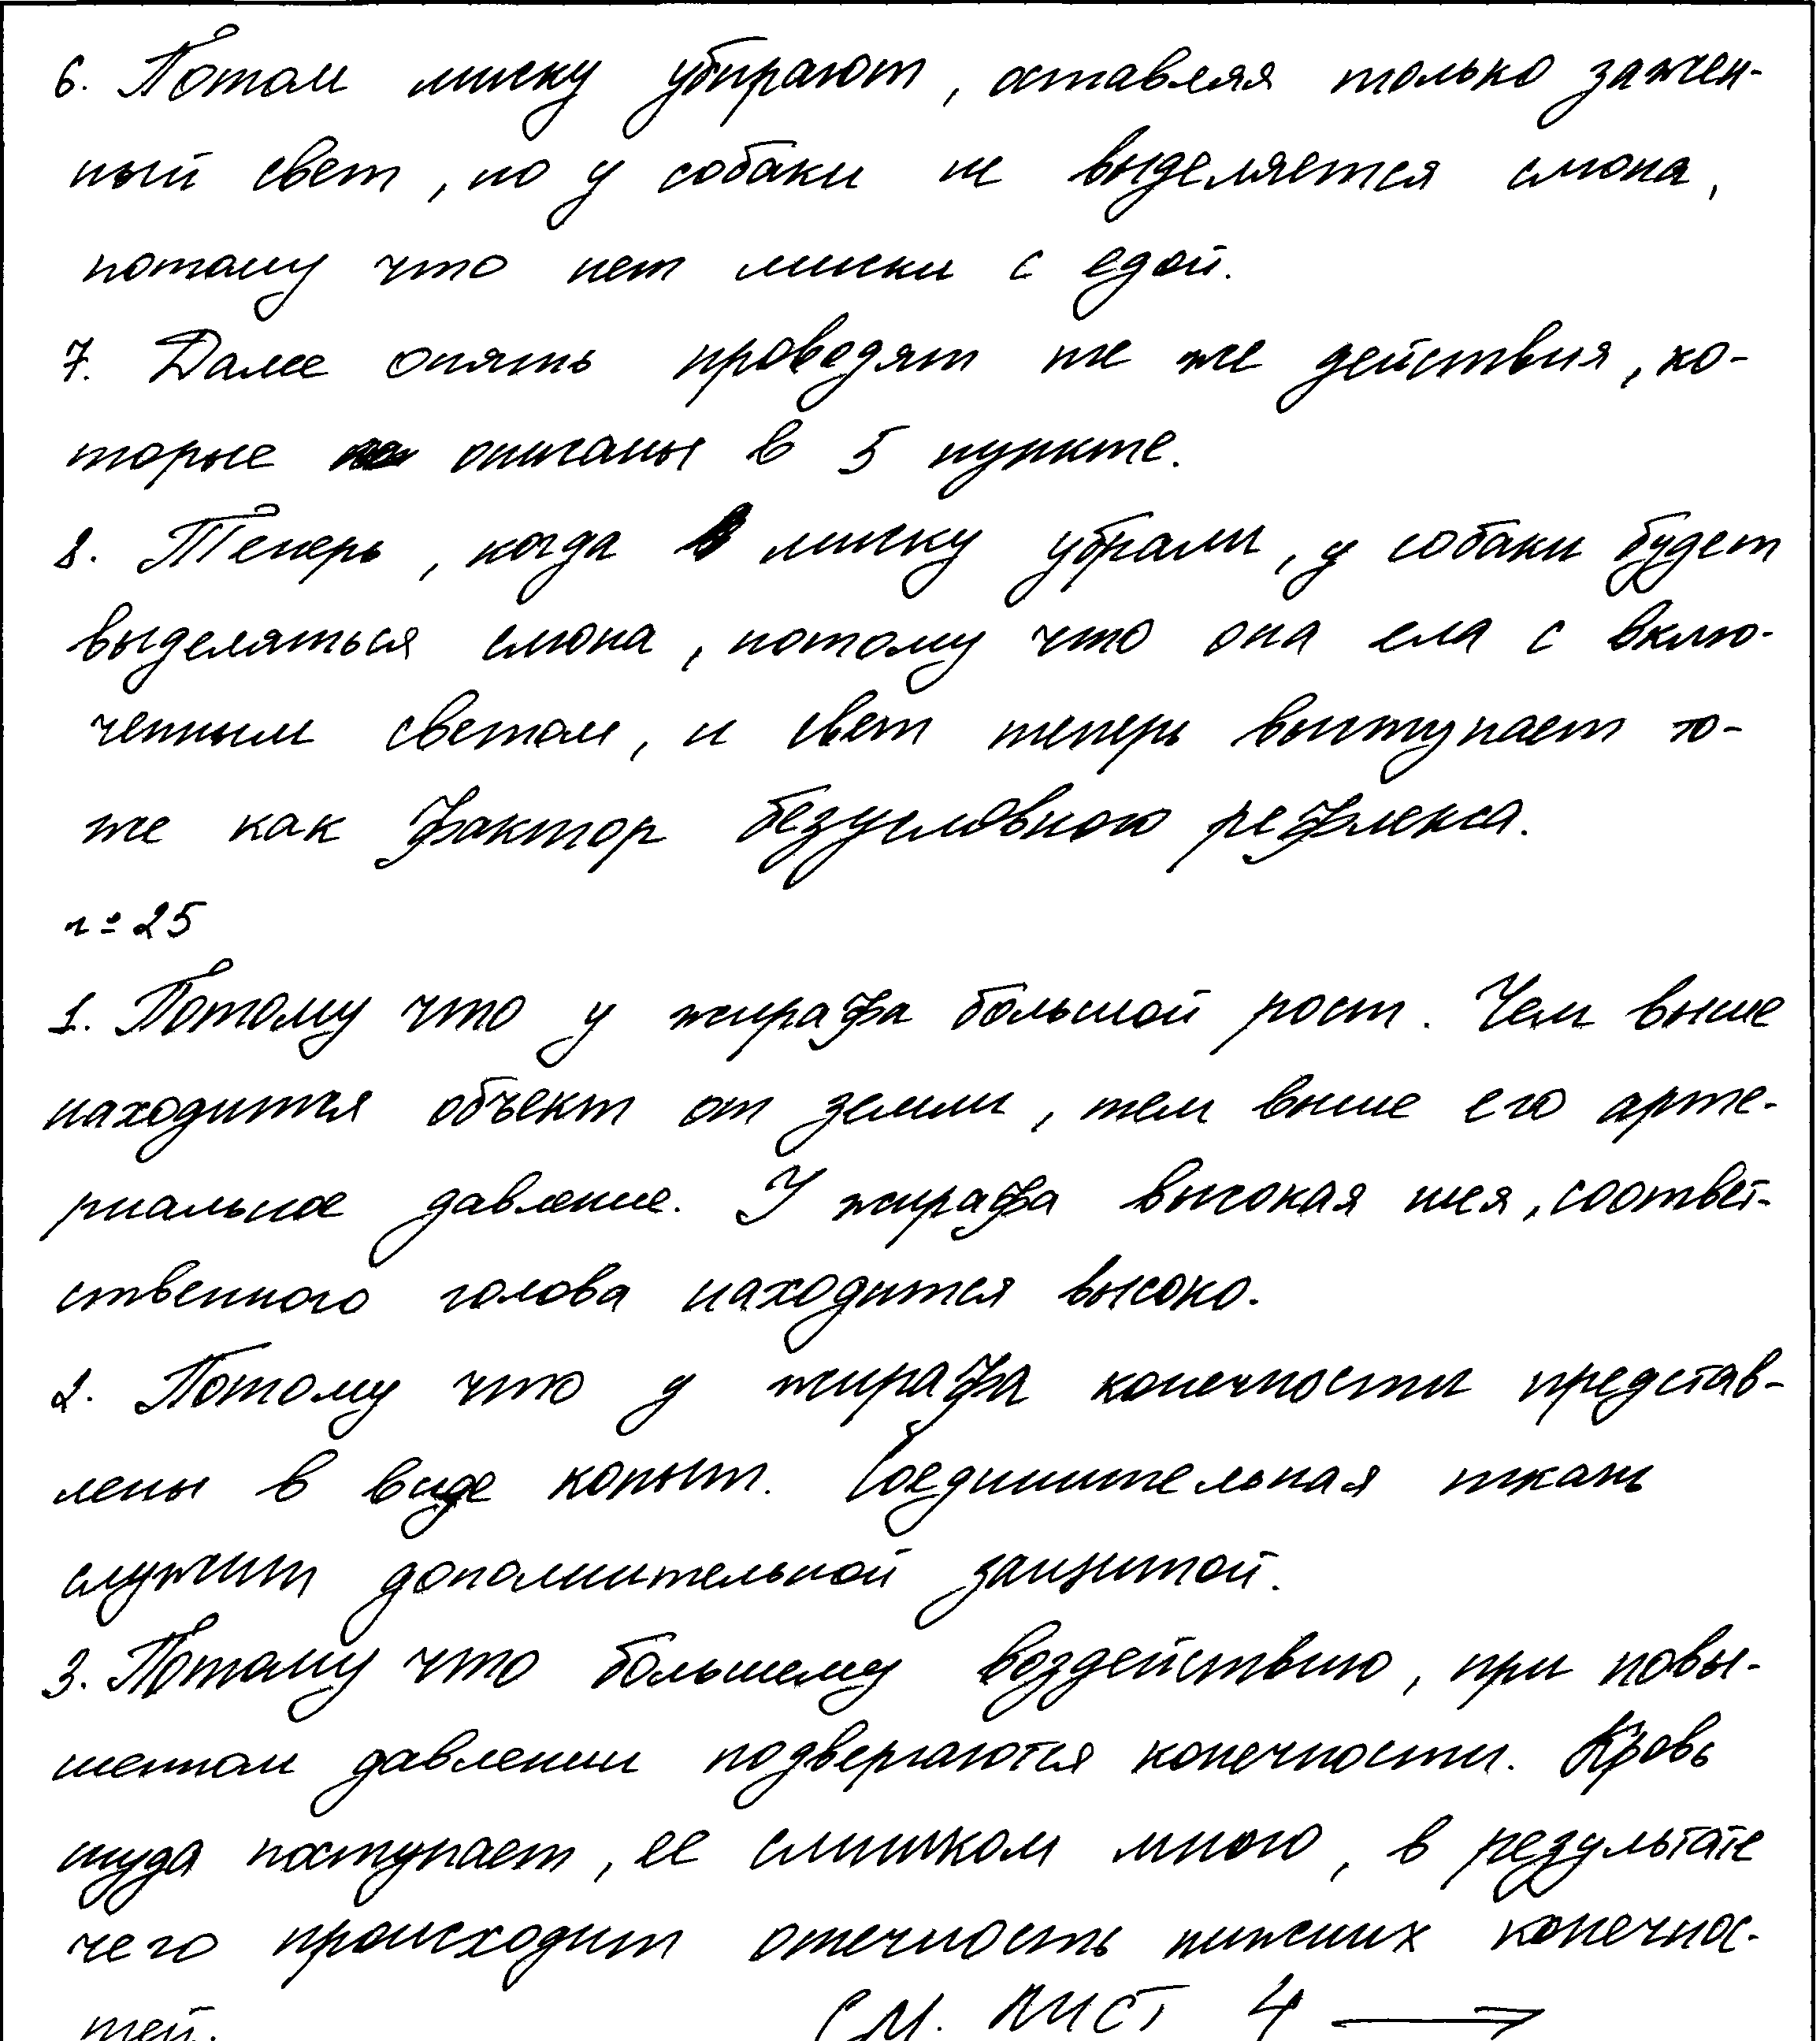 6. Потом миску убирают, оставляя только зажжен-
ный свет, но у собаки не выделяется слюна,
потому что нет миски с едой.
7. Далее опять проводят те же действия, ко-
торые описаны в 5 пункте.
8. Теперь, когда миску убрали, у собаки будет
выделяться слюна, потому что она ела с вклю-
ченным светом, и свет теперь выступает то-
же как фактор безусловного рефлекса.
№ 25
1. Потому что у жирафа большой рост. Чем выше
находится объект от земли, тем выше его арте-
риальное давление. У жирафа высокая шея, соответ-
ственного голова находится высоко.
2. Потому что у жирафа конечности представ-
лены в виде копыт. Соединительная ткань
служит дополнительной защитой.
3. Потому что большему воздействию, при повы-
шенном давлении подвергаются конечности. Кровь
туда поступает, ее слишком много, в результате
чего происходит отечность нижних конечнос-
тей. См. лист 4 →